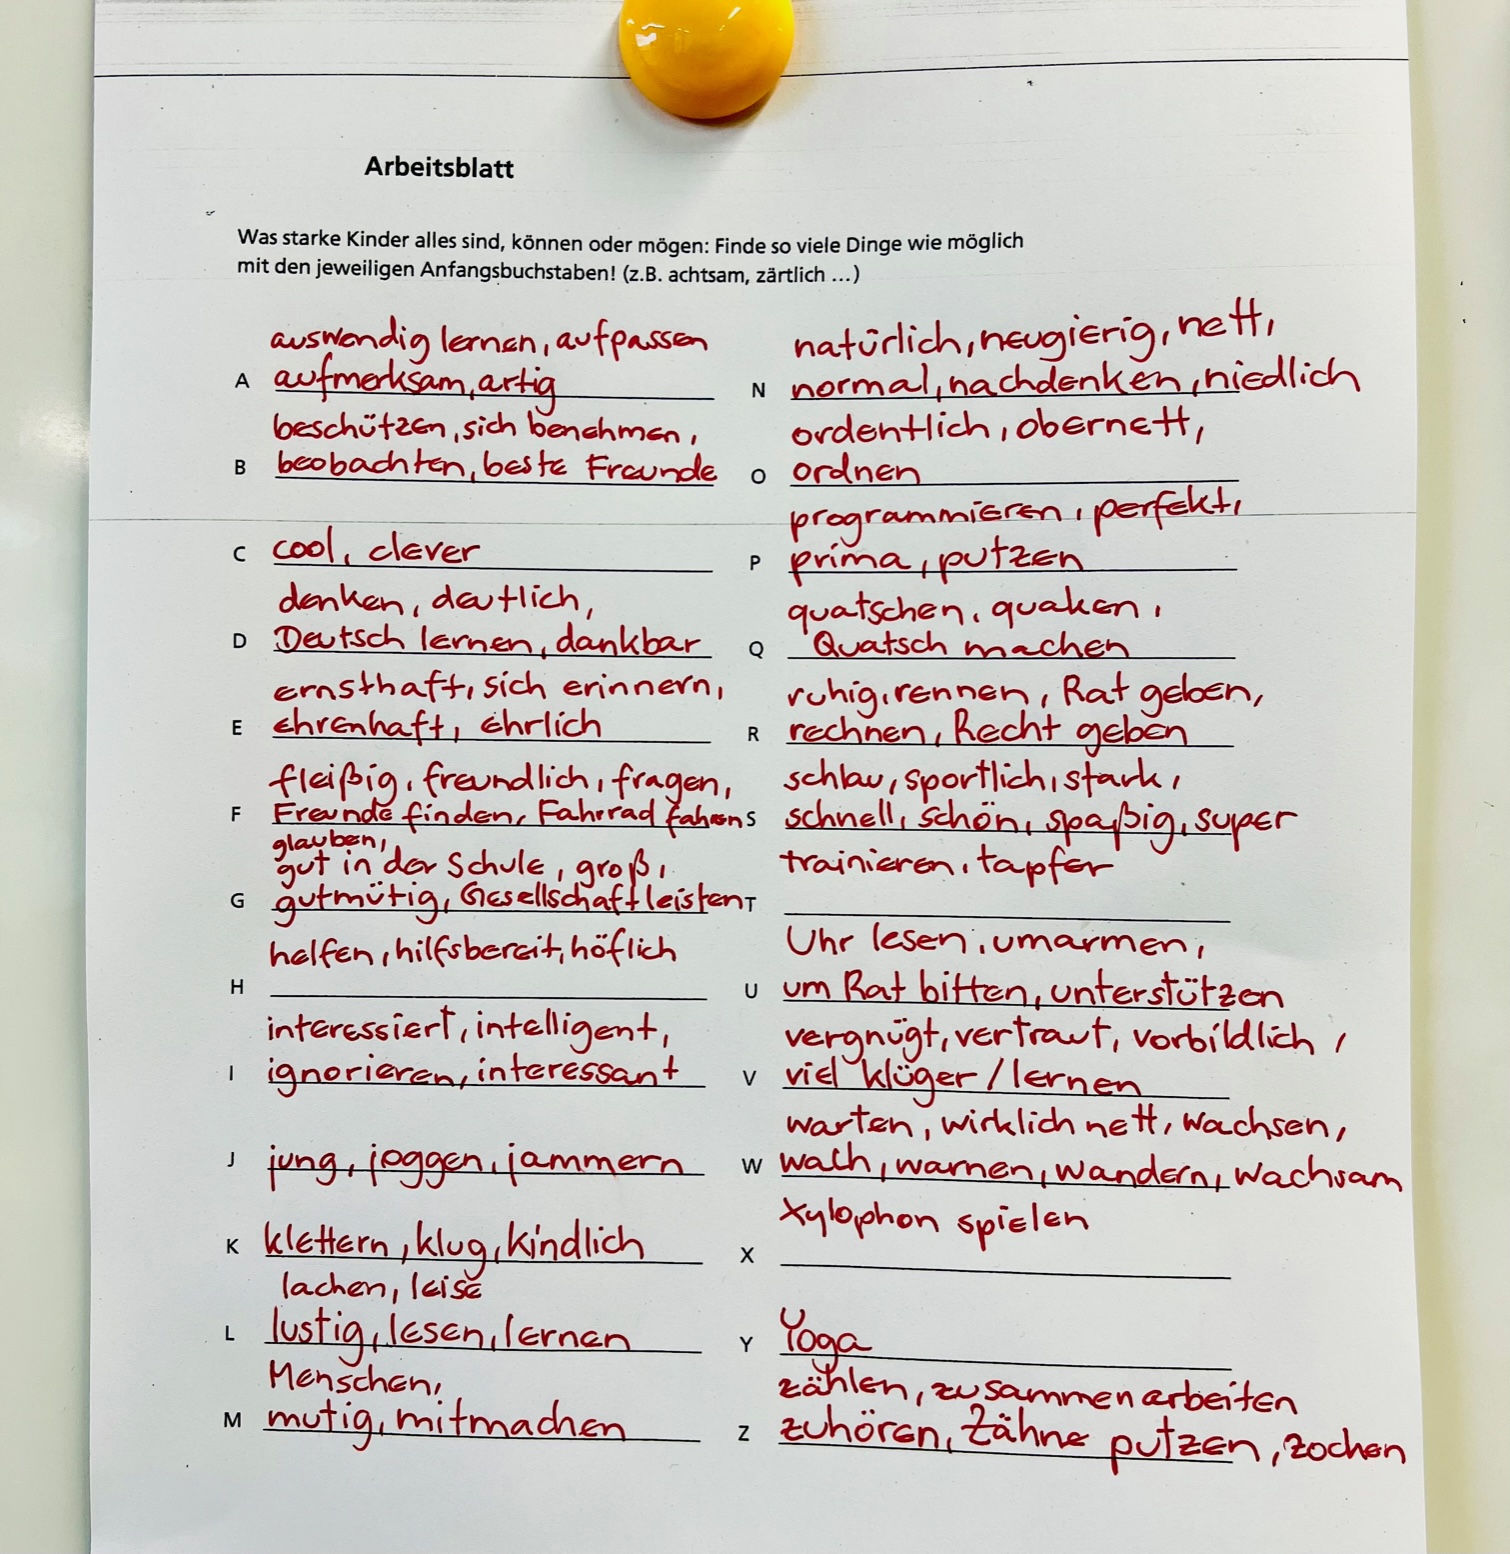 Arbeitsblatt
Was starke Kinder alles sind, können oder mögen: Finde so viele Dinge wie möglich
mit den jeweiligen Anfangsbuchstaben! (z.B. achtsam, zärtlich ...)
auswendig lernen, aufpassen
A aufmerksam, artig
beschützen, sich benehmen,
B beobachten, beste Freunde
C cool, clever
denken, deutlich,
D Deutsch lernen, dankbar
ernsthaft, sich erinnern,
E ehrenhaft, ehrlich
fleißig, freundlich, fragen,
F Freunde finden, Fahrrad fahren
glauben,
gut in der Schule, groß,
G gutmütig, Gesellschaft leisten
helfen, hilfsbereit, höflich
H
interessiert, intelligent,
I ignorieren, interessant
J jung, joggen, jammern
K klettern, klug, kindlich
lachen, leise
L lustig, lesen, lernen
Menschen,
M mutig, mitmachen
natürlich, neugierig, nett,
N normal, nachdenken, niedlich
ordentlich, obernett,
O ordnen
programmieren, perfekt,
P prima, putzen
quatschen, quaken,
Q Quatsch machen
ruhig, rennen, Rat geben,
R rechnen, Recht geben
schlau, sportlich, stark,
S schnell, schön, spaßig, super
trainieren, tapfer
T
Uhr lesen, umarmen,
U um Rat bitten, unterstützen
vergnügt, vertraut, vorbildlich,
V viel klüger / lernen
warten, wirklich nett, wachsen,
W wach, warnen, wandern, wachsam
Xylophon spielen
X
Y Yoga
zählen, zusammen arbeiten
Z zuhören, Zähne putzen, zocken